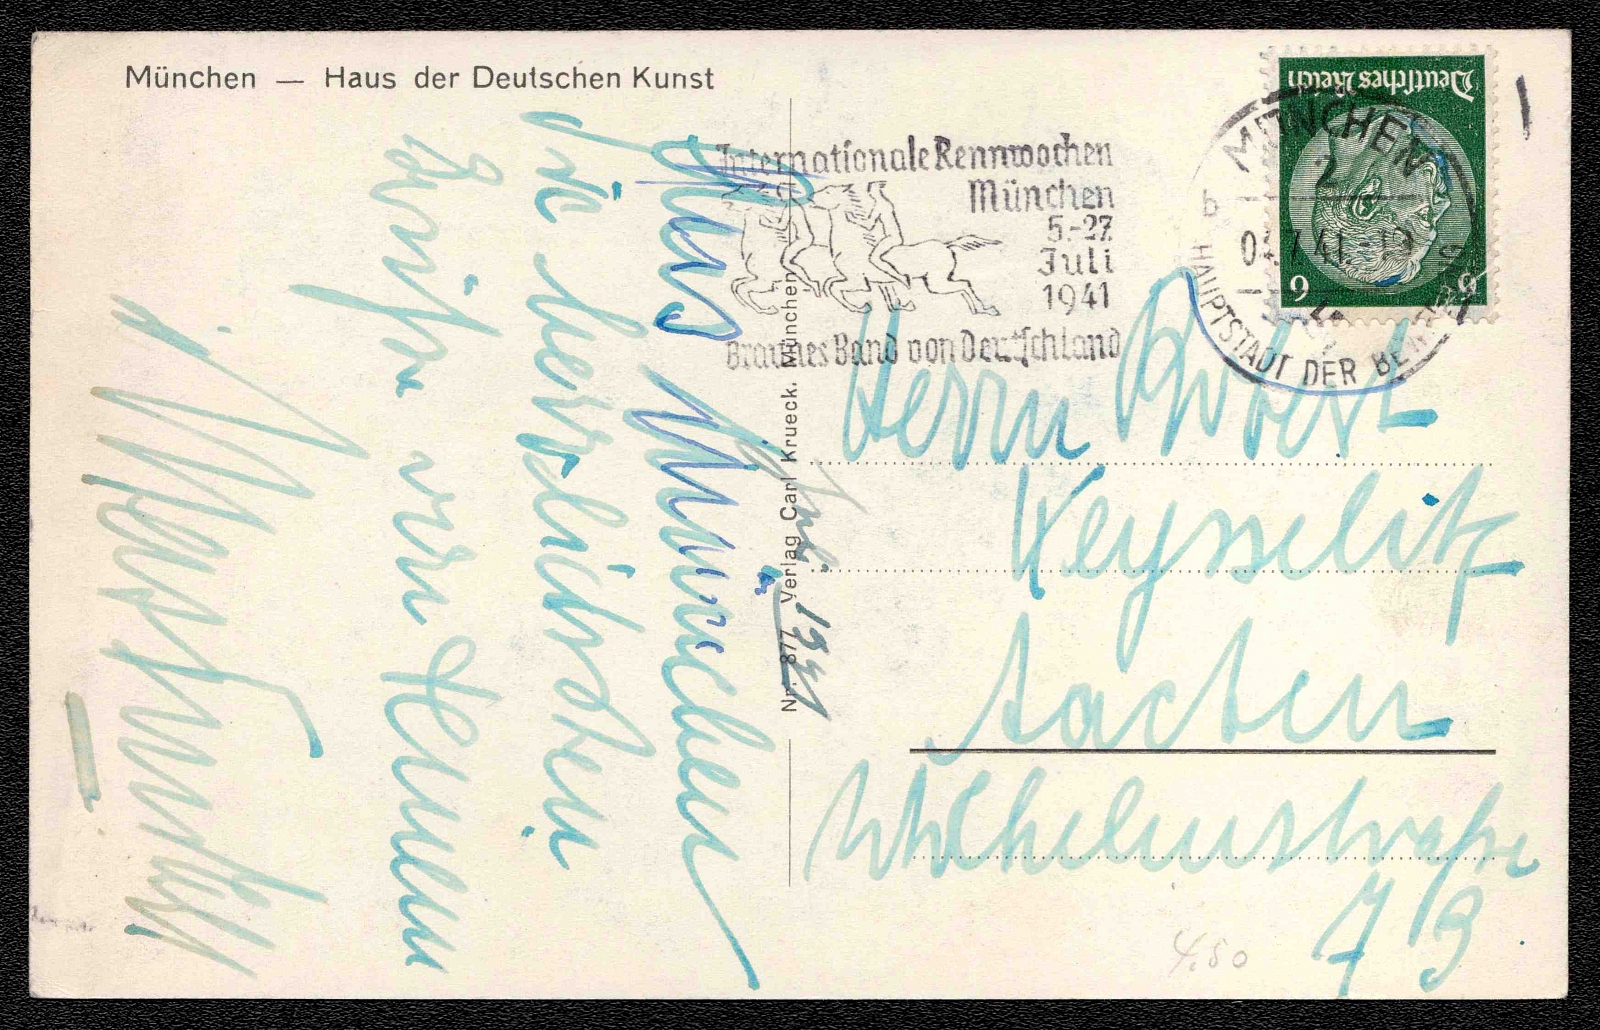 München — Haus der Deutschen Kunst
Internationale Rennwochen
München
5.-27.
Juli
1941
Braunes Band von Deutschland
Deutsches Reich
6 6
MÜNCHEN
2
HAUPTSTADT DER BEWEGUNG
b
Nr. 877 Verlag Carl Krueck, München
Juli 1941
Aus München
die herzlichsten
Grüsse
Herrn Robert
Keysselitz
Aachen
Wilhelmstraße
79
4.80